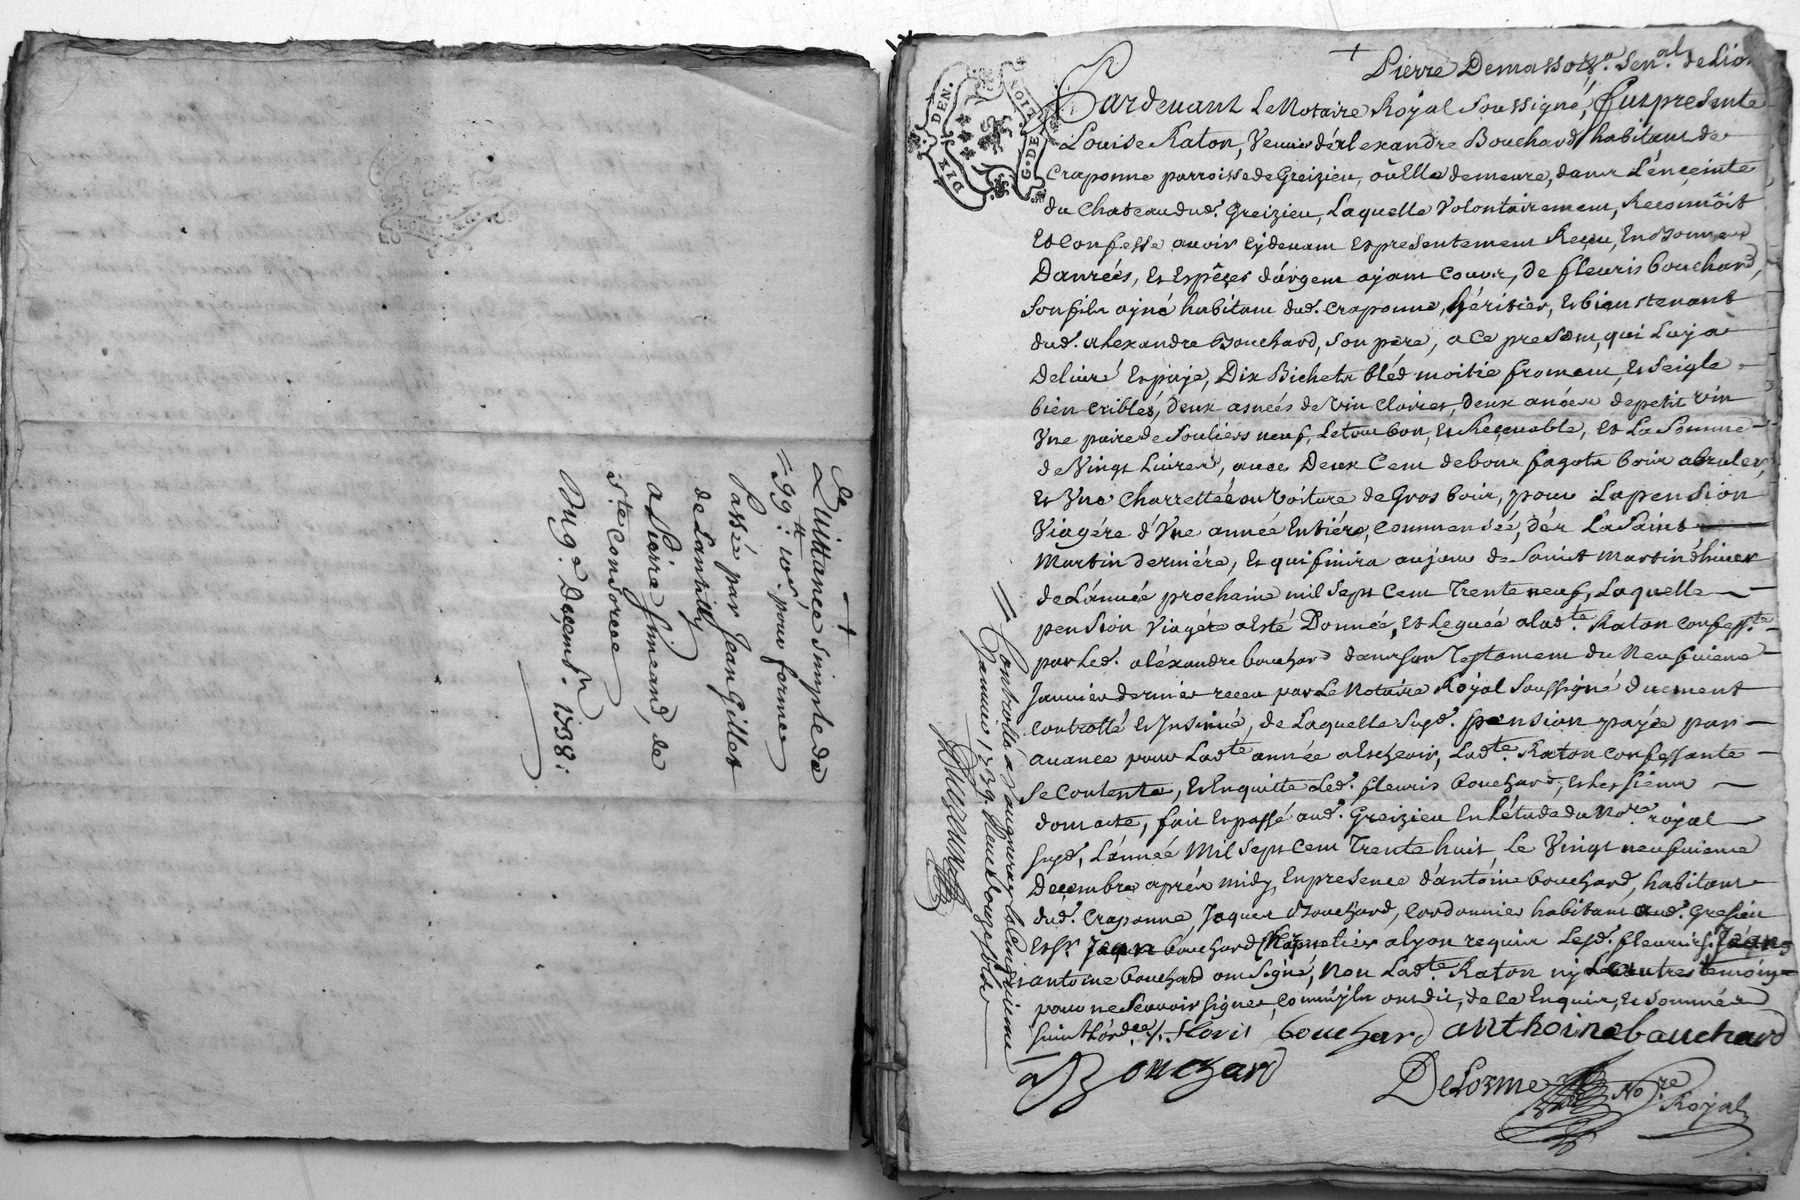 +
Quittance simple de
199.tt 10.s pour ferme
Passée par Jean Gillet
de Lantilly
a Pierre Simeand, de
s.te Consorce
Du 9.e Decemb. 1738:
DIX DEN.
G. DE
+
Pierre Demassot Sen.al de Lion
Pardevant Le Notaire Royal Soussigné, fut presente
Louise Raton, Veuve d'Alexandre Bouchard habitant de
Craponne parroisse de Greizieu, où Elle demeure, dans L'ençeinte
du Chateau dud. Greizieu, Laquelle Volontairement, Reconnoit
Et Confesse avoir cy devant et presentement Reçu, En bonnes
Danrées, et Espêçes d'argent ayant Cours, de fleuris bouchard,
son fils ayné habitant dud. Craponne, héritier, et bien tenant
dud. alexandre Bouchard, son père, a ce present, qui Luy a
Delivré et payé, Dix Bichets bléd moitié froment, et Seigle
bien criblés, deux asnées de vin clairet, deux anées de petit vin
Une paire de souliers neuf, Le tout bon, et Reçevable, et La Somme
de Vingt Livres, avec Deux Cent de bons fagots bois a bruler,
et Une charrettée ou voiture de Gros bois, pour La pension
Viagére d'Une année Entiére, commensée, dés La Saint
Martin derniére, et qui finira au jour de Saint Martin d'hiver
de L'année prochaine mil Sept Cent Trente neuf, Laquelle
pension Viagére a Esté Donnée, et Leguée a lad.te Raton confess.te
par Led. aléxandre bouchard dans son Testament du Neufvieme
Janvier dernier receu par Le Notaire Royal Soussigné duement
Controllé et Insinué, de Laquelle Susd. pension payée par
avance pour Lad.te année a Escheoir, Lad.te Raton confessante
Se Contente, et En quitte Led. fleuris bouchard, et les siens
dont acte, fait et passé aud. Greizieu En L'étude du No.re royal
susd. L'année Mil Sept Cent Trente huit Le Vingt neufvieme
Decembre aprés midy, En presence d'antoine bouchard, habitant
dud. Craponne, Jaques Bouchard, Cordonnier habitant aud. Gresieu
Et Sr. Jean bouchard Chapnelier a lyon requis Lesd. fleuris, Jean
antoine bouchard ont signé, Non Lad.te Raton ny Les autres temoins
pour ne sçavoir signer, comme ils ont dit, de ce Enquis, et sommés
suivt L'ord.ce /. floris bouchard anthoine bouchard
Bouchard
DeLorme No.re Royal
Controllé a Vaugneray le Cinquieme
Janvier 1739. Reçu Douze sols